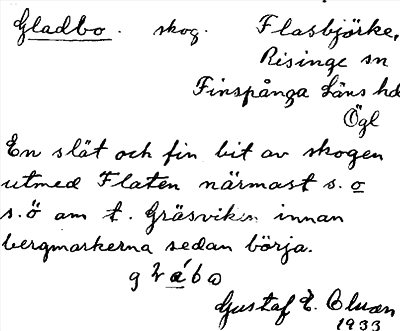 Gladbo. skog. Flasbjörke,
Risinge sn
Finspånga Läns hd
Ögl
En slät och fin bit av skogen
utmed Flaten närmast s. o
s. ö om t. Gräsviken innan
bergmarkerna sedan börja.
Gustaf E.
1933